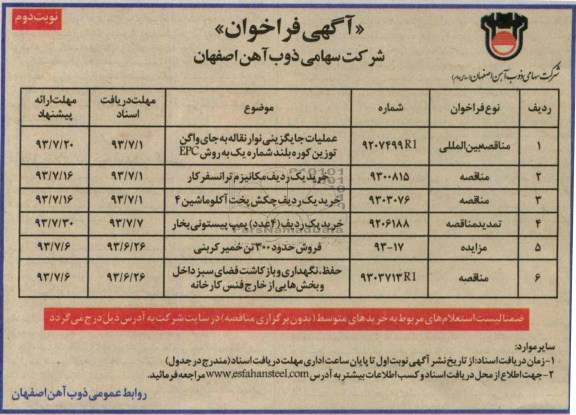 نوبت دوم
«آگهی فراخوان»
شرکت سهامی ذوب آهن اصفهان
شرکت سهامی ذوب آهن اصفهان (سهامی عام)
ردیف نوع فراخوان شماره موضوع مهلت دریافت اسناد مهلت ارائه پیشنهاد
۱ مناقصه بین المللی ۹۲۰۷۴۹۹R1 عملیات جایگزینی نوار نقاله به جای واگن توزین کوره بلند شماره یک به روش EPC ۹۳/۷/۱ ۹۳/۷/۲۰
۲ مناقصه ۹۳۰۰۸۱۵ خرید یک ردیف مکانیزم ترانسفر کار ۹۳/۷/۱ ۹۳/۷/۱۶
۳ مناقصه ۹۳۰۳۰۷۶ خرید یک ردیف چکش پخت آکلوماشین ۴ ۹۳/۷/۱ ۹۳/۷/۱۶
۴ تمدید مناقصه ۹۲۰۶۱۸۸ خرید یک ردیف (۴عدد) پمپ پیستونی بخار ۹۳/۷/۷ ۹۳/۷/۳۰
۵ مزایده ۹۳-۱۷ فروش حدود ۳۰۰ تن خمیر کربنی ۹۳/۶/۲۶ ۹۳/۷/۶
۶ مناقصه ۹۳۰۳۷۱۳R1 حفظ، نگهداری و باز کاشت فضای سبز داخل و بخش هایی از خارج فنس کارخانه ۹۳/۶/۲۶ ۹۳/۷/۶
ضمنا لیست استعلام های مربوط به خریدهای متوسط (بدون برگزاری مناقصه) در سایت شرکت به آدرس ذیل درج می گردد
سایر موارد:
۱-زمان دریافت اسناد: از تاریخ نشر آگهی نوبت اول تا پایان ساعت اداری مهلت دریافت اسناد (مندرج در جدول)
۲-جهت اطلاع از محل دریافت اسناد و کسب اطلاعات بیشتر به آدرس www.esfahansteel.com مراجعه فرمائید.
روابط عمومی ذوب آهن اصفهان